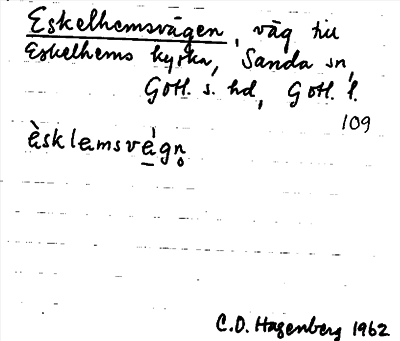 Eskelhemsvägen, väg till
Eskelhems kyrka, Sanda sn,
Gotl. s. hd, Gotl. l.
109
èsklemsvè̱gn̥
C.O. Hagenberg 1962